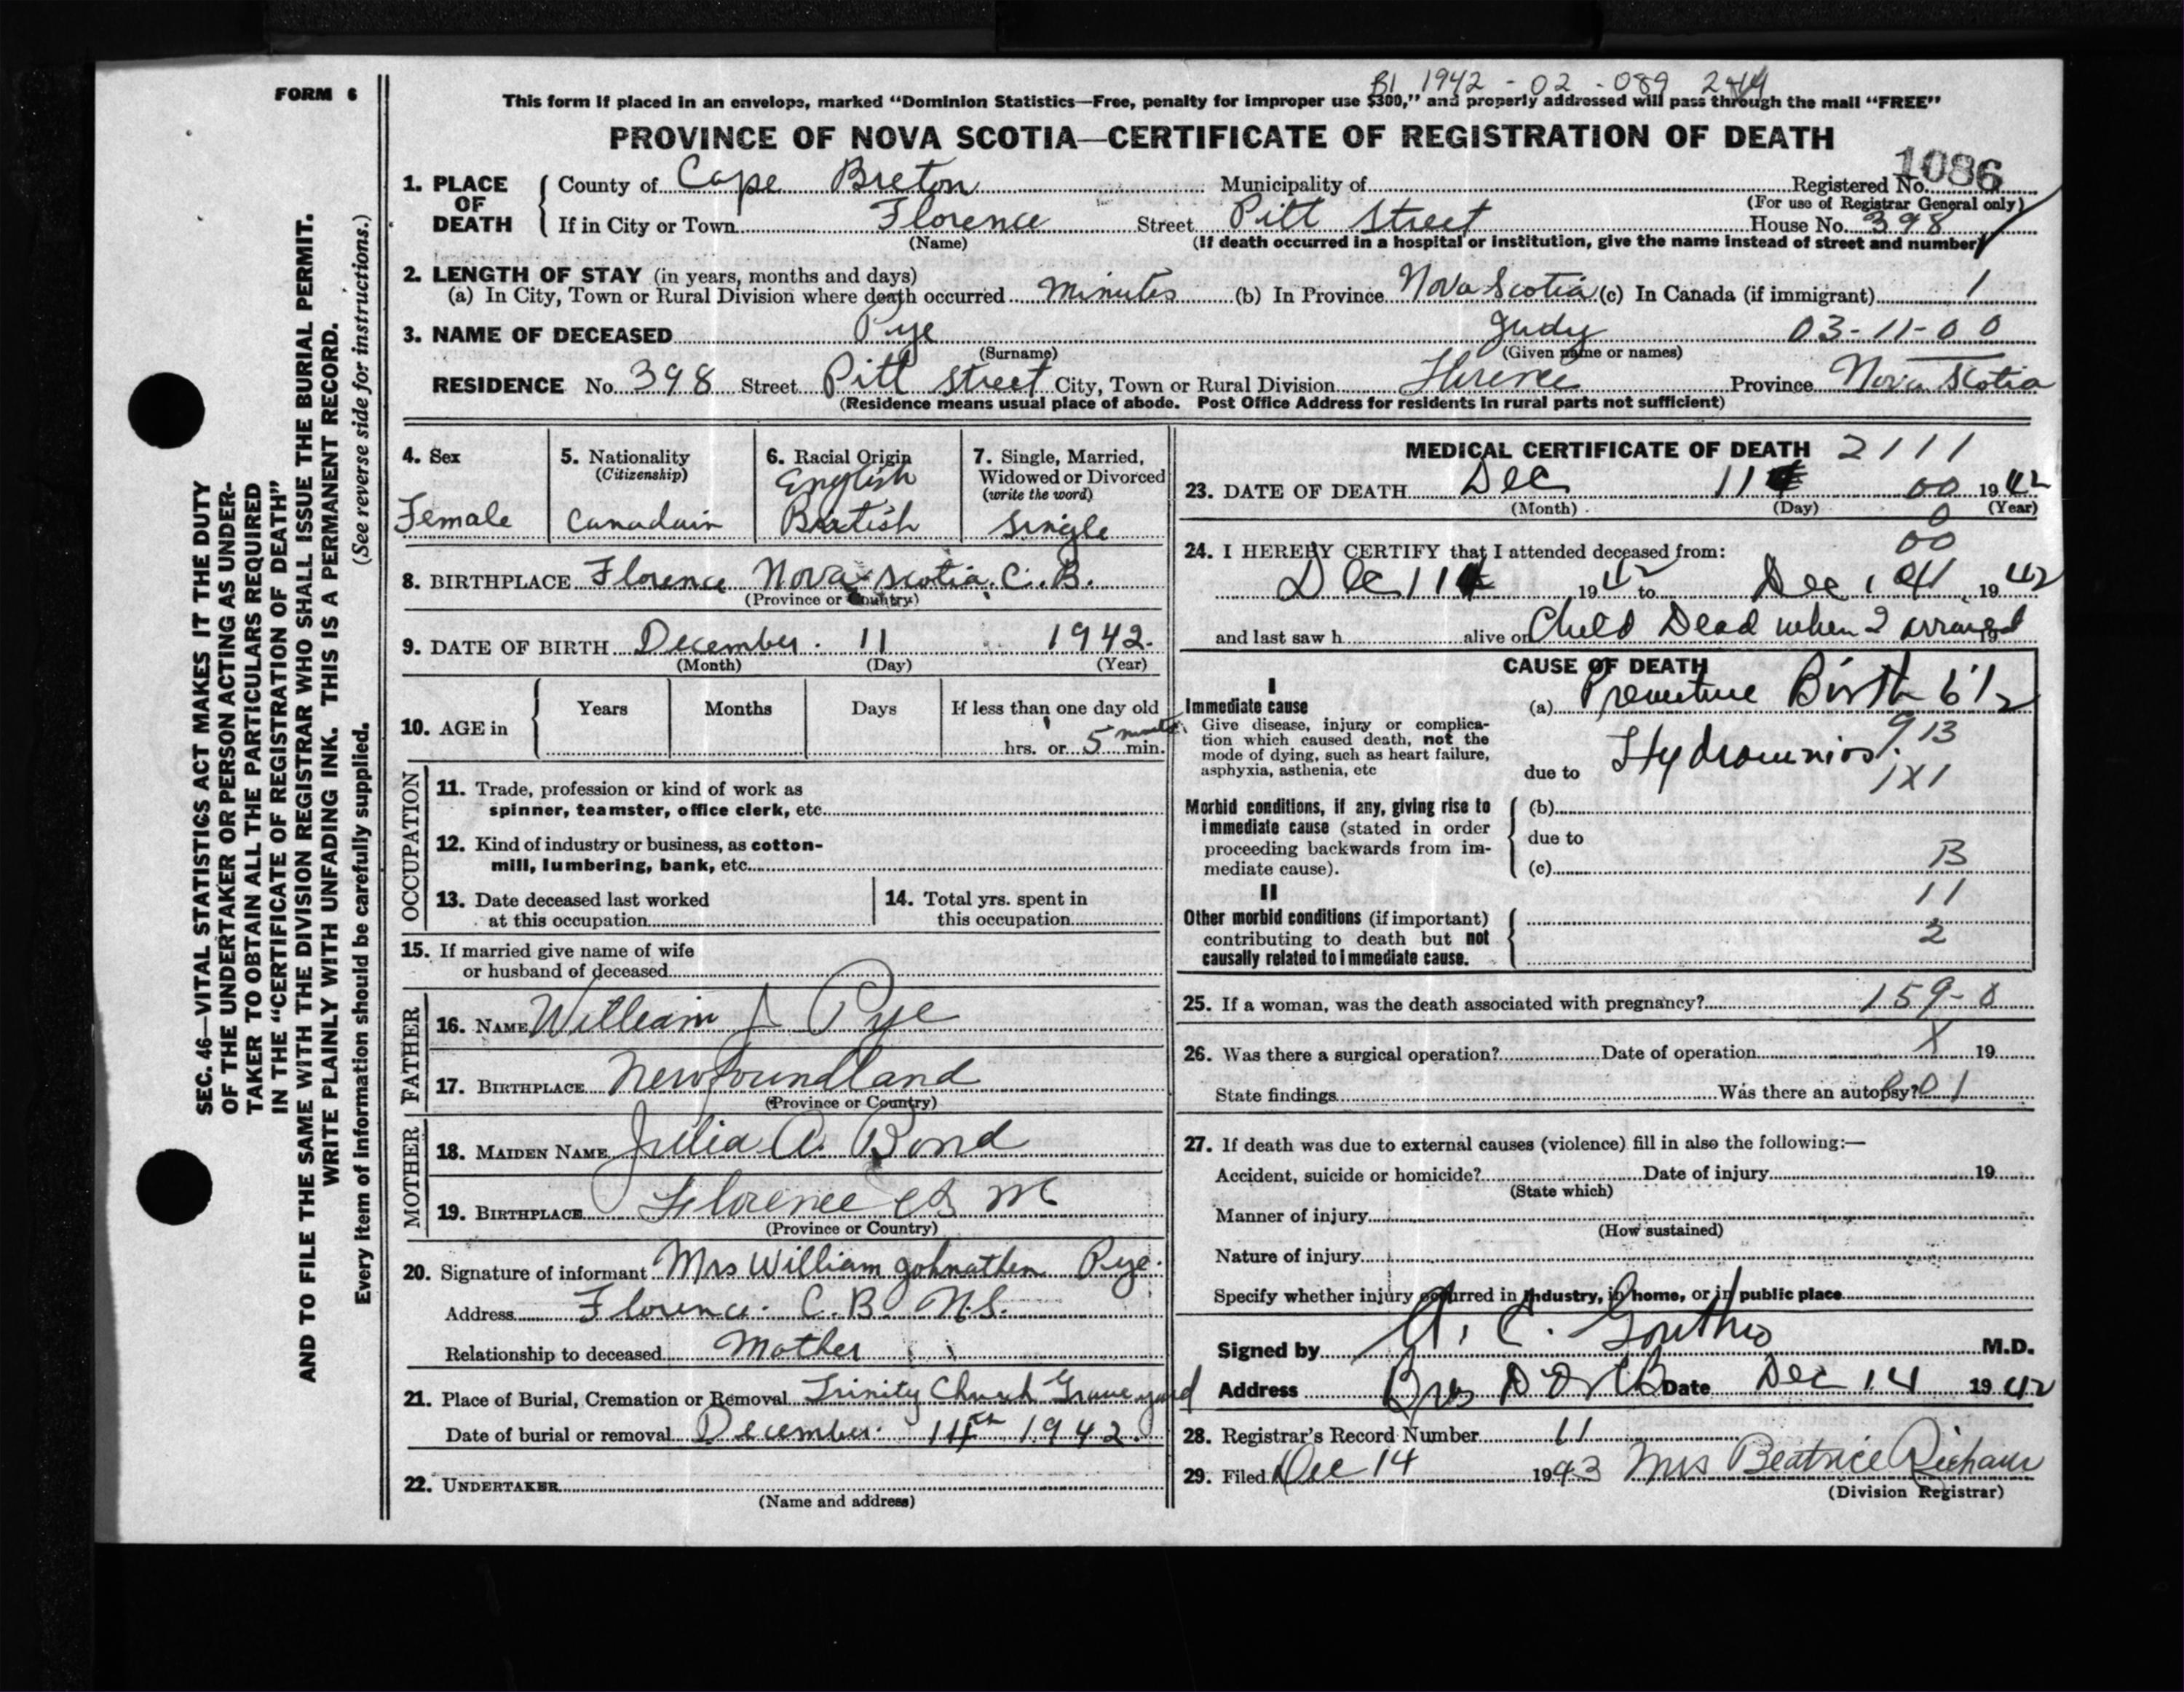 FORM 6
B1 1942 - 02 - 089 244
This form if placed in an envelope, marked "Dominion Statistics—Free, penalty for improper use $300," and properly addressed will pass through the mail "FREE"
PROVINCE OF NOVA SCOTIA—CERTIFICATE OF REGISTRATION OF DEATH
1. PLACE OF DEATH
County of Cape Breton Municipality of Registered No. 1086
(For use of Registrar General only)
If in City or Town Florence Street Pitt Street House No. 398
(Name) (If death occurred in a hospital or institution, give the name instead of street and number)
2. LENGTH OF STAY (in years, months and days)
(a) In City, Town or Rural Division where death occurred minutes (b) In Province Nova Scotia (c) In Canada (if immigrant) 1
3. NAME OF DECEASED Pye Judy 03-11-00
(Surname) (Given name or names)
RESIDENCE No. 398 Street Pitt Street City, Town or Rural Division Florence Province Nova Scotia
(Residence means usual place of abode. Post Office Address for residents in rural parts not sufficient)
4. Sex
Female
5. Nationality
(Citizenship)
Canadain
6. Racial Origin
English
British
7. Single, Married,
Widowed or Divorced
(write the word)
Single
8. BIRTHPLACE Florence Nova Scotia. C. B.
(Province or Country)
9. DATE OF BIRTH December. 11 1942.
(Month) (Day) (Year)
10. AGE in
Years Months Days If less than one day old
hrs. or 5 minutes min.
OCCUPATION
11. Trade, profession or kind of work as
spinner, teamster, office clerk, etc.
12. Kind of industry or business, as cotton-
mill, lumbering, bank, etc.
13. Date deceased last worked
at this occupation
14. Total yrs. spent in
this occupation
15. If married give name of wife
or husband of deceased
FATHER
16. NAME William J Pye
17. BIRTHPLACE Newfoundland
(Province or Country)
MOTHER
18. MAIDEN NAME Julia A. Bond
19. BIRTHPLACE Florence CB
(Province or Country)
20. Signature of informant Mrs William Johnathen Pye.
Address Florence. C. B. N.S.
Relationship to deceased Mother
21. Place of Burial, Cremation or Removal Trinity Church Graveyard
Date of burial or removal December. 11th 1942.
22. UNDERTAKER
(Name and address)
MEDICAL CERTIFICATE OF DEATH 2111
23. DATE OF DEATH Dec 11 00 1942
(Month) (Day) (Year)
0
24. I HEREBY CERTIFY that I attended deceased from:
00
Dec 11 1942 to Dec 1942
and last saw h alive on Child Dead when I arrived
CAUSE OF DEATH
I
Immediate cause
Give disease, injury or complica-
tion which caused death, not the
mode of dying, such as heart failure,
asphyxia, asthenia, etc
(a) Premature Birth 6 1/2
913
due to Hydramnios.
1X1
Morbid conditions, if any, giving rise to
immediate cause (stated in order
proceeding backwards from im-
mediate cause).
(b)
due to
(c) B
II
11
Other morbid conditions (if important)
contributing to death but not
causally related to immediate cause.
2
25. If a woman, was the death associated with pregnancy? 159-0
26. Was there a surgical operation? Date of operation X 19
State findings Was there an autopsy? 001
27. If death was due to external causes (violence) fill in also the following:—
Accident, suicide or homicide? Date of injury 19
(State which)
Manner of injury
(How sustained)
Nature of injury
Specify whether injury occurred in industry, in home, or in public place
Signed by A. C. M.D.
Address Date Dec 14 1942
28. Registrar's Record Number 11
29. Filed Dec 14 1943 Mrs Beatrice
(Division Registrar)
SEC. 46—VITAL STATISTICS ACT MAKES IT THE DUTY
OF THE UNDERTAKER OR PERSON ACTING AS UNDER-
TAKER TO OBTAIN ALL THE PARTICULARS REQUIRED
IN THE "CERTIFICATE OF REGISTRATION OF DEATH"
AND TO FILE THE SAME WITH THE DIVISION REGISTRAR WHO SHALL ISSUE THE BURIAL PERMIT.
WRITE PLAINLY WITH UNFADING INK. THIS IS A PERMANENT RECORD.
Every item of information should be carefully supplied. (See reverse side for instructions.)